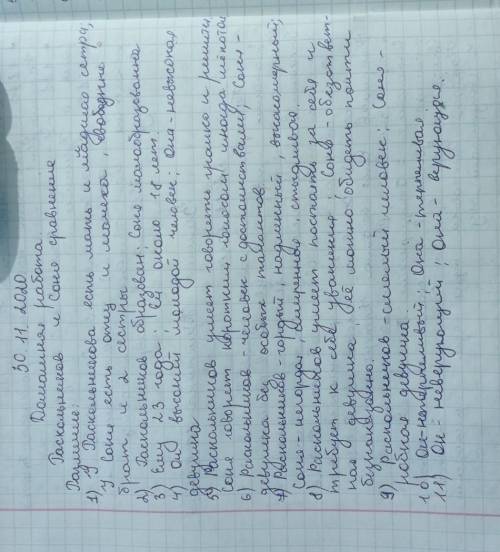 30.11.2020
Домашняя работа
Раскольников и Соня сравнение
Различие:
1) У Раскольникова есть мать и младшая сестра;
У Сони есть отец и мачеха, сводные
брат и 2 сестры.
2) Раскольников образован; Соня малообразованна
3) Ему 23 года; Ей около 18 лет.
4) Он высокий молодой человек; Она - невысокая
девушка
5) Раскольников умеет говорить громко и решительно;
Соня говорит коротким голосом, иногда шёпотом
6) Раскольников - человек с достоинствами; Соня -
девушка без особых талантов
7) Раскольников - гордый, надменный, высокомерный;
Соня - негордая, смиренная, стыдливая.
8) Раскольников умеет постоять за себя и
требует к себе уважения; Соня - безответ-
ная девушка, её можно обидеть почти
безнаказанно.
9) Раскольников - смелый человек; Соня -
робкая девушка
10) Он - нетерпеливый; Она - терпеливая
11) Он - неверующий; Она - верующая.